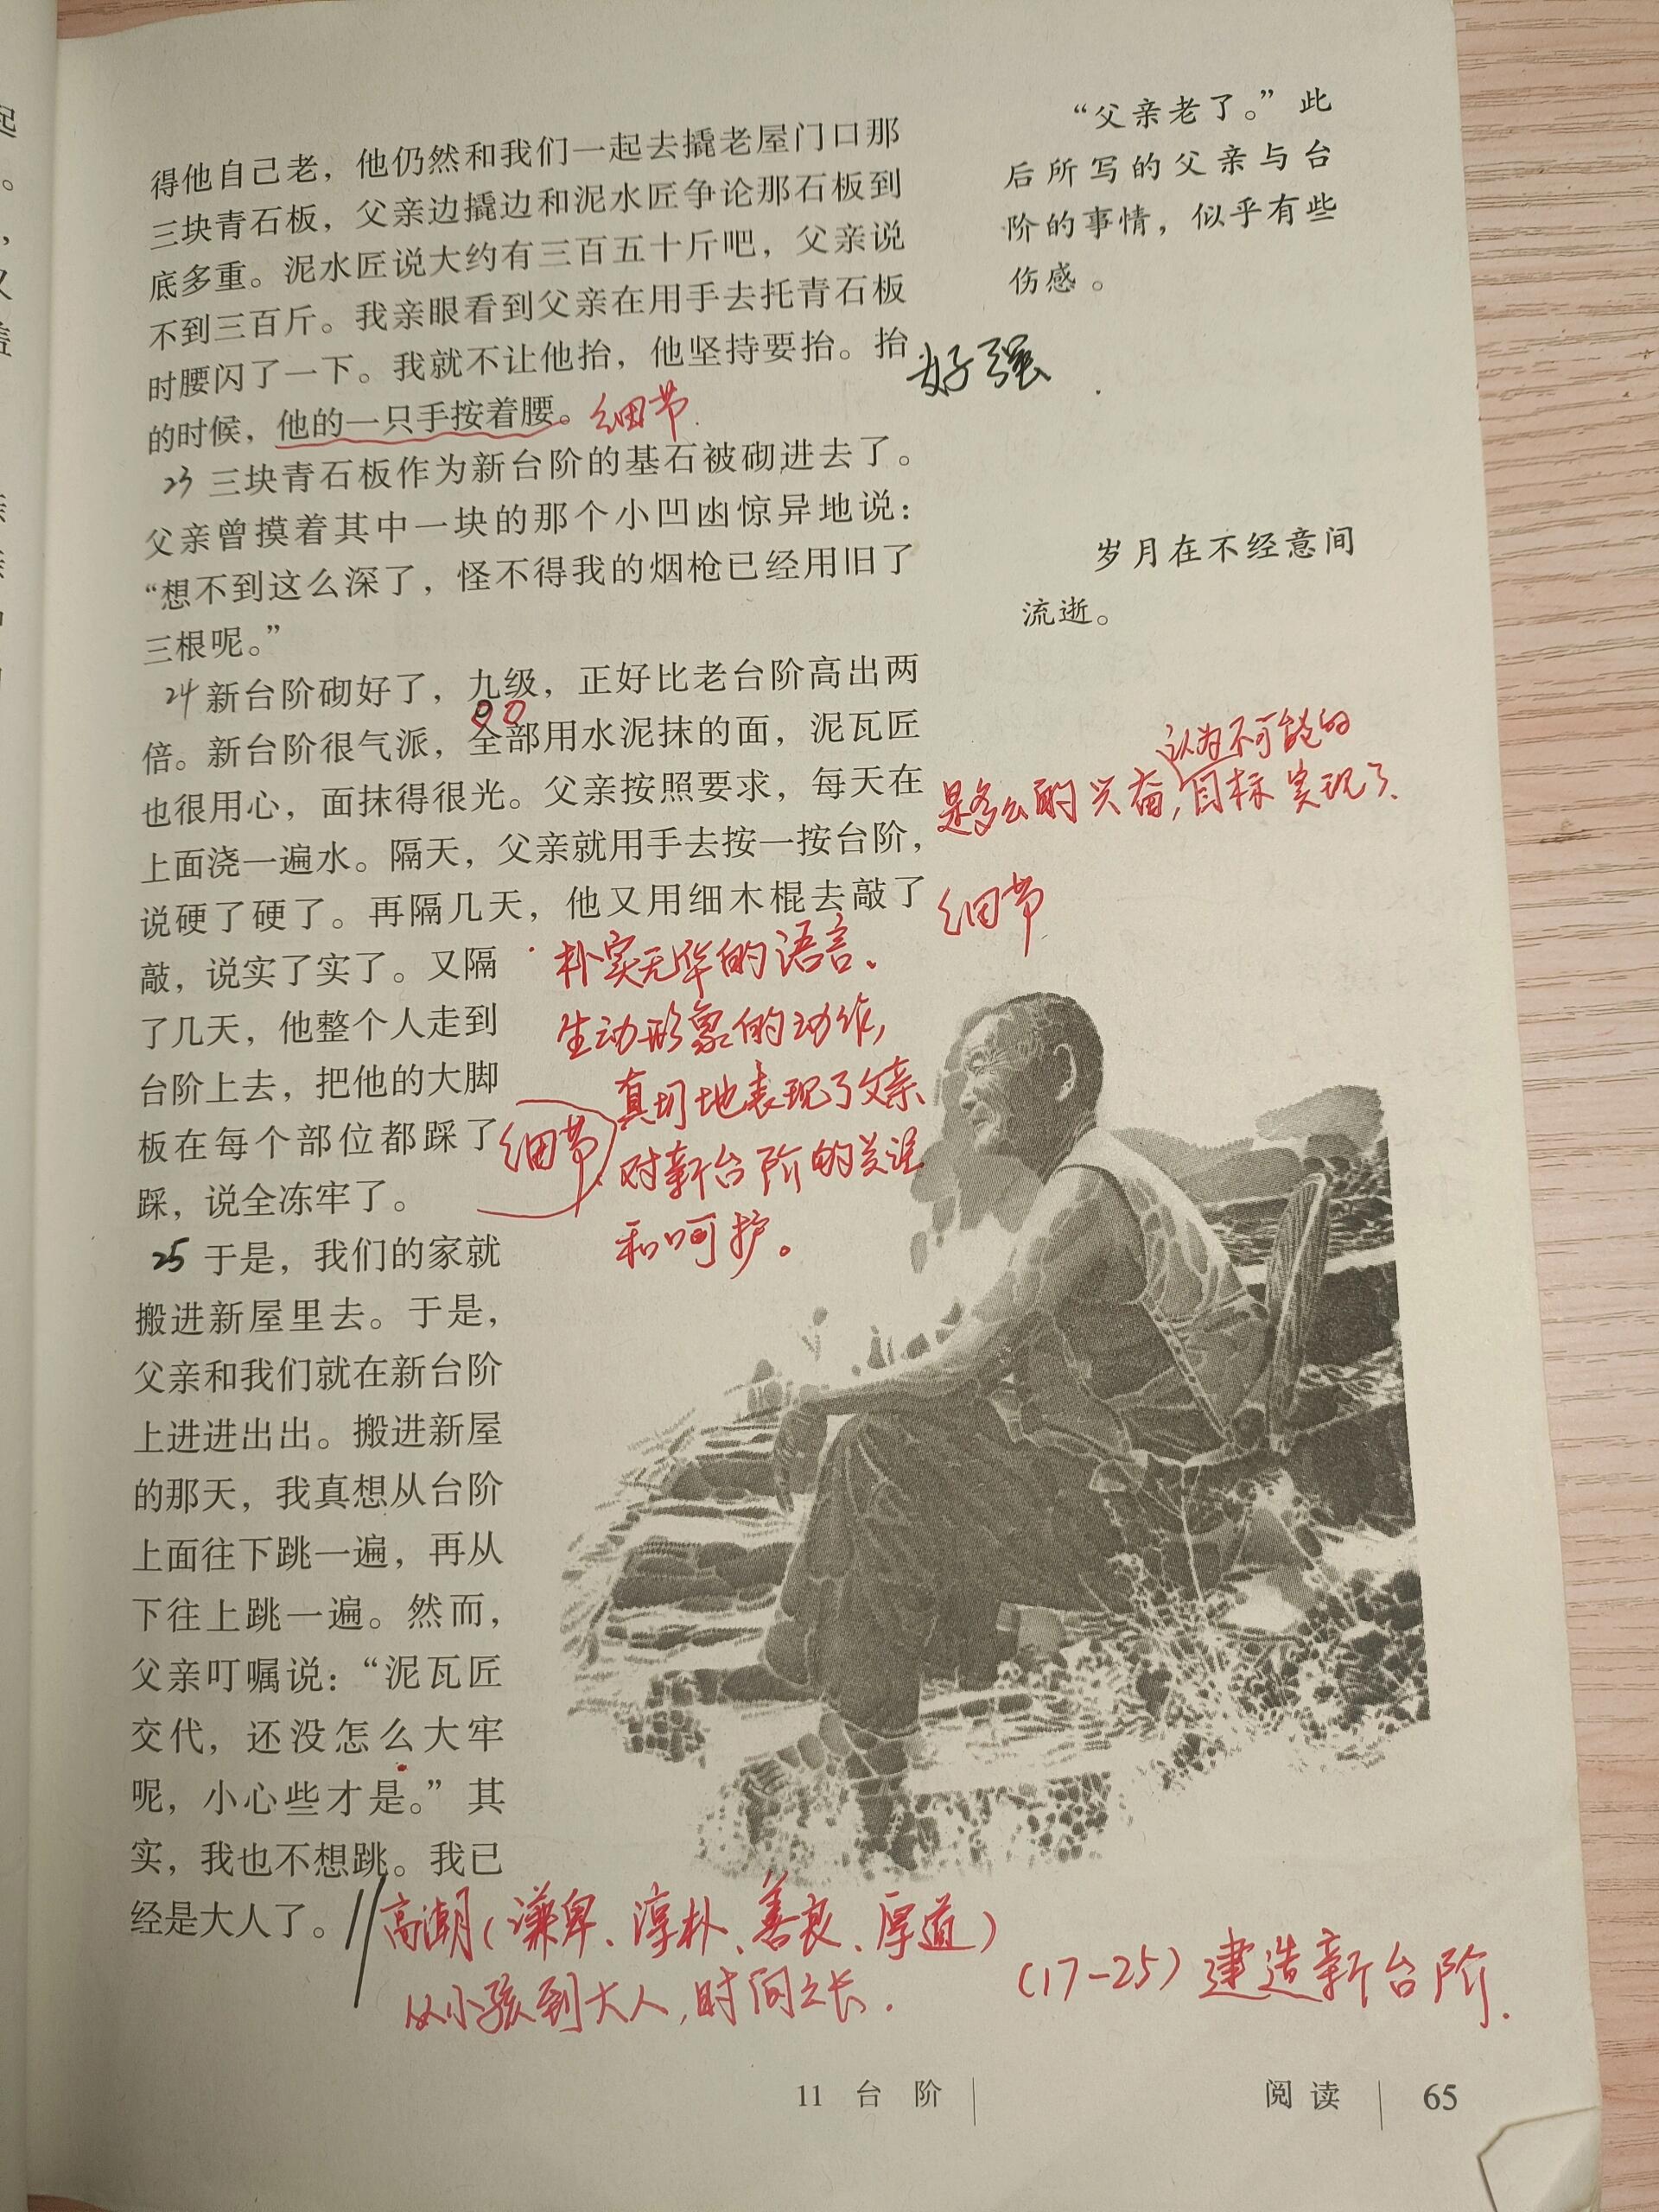 得他自己老，他仍然和我们一起去撬老屋门口那
三块青石板，父亲边撬边和泥水匠争论那石板到
底多重。泥水匠说大约有三百五十斤吧，父亲说
不到三百斤。我亲眼看到父亲在用手去托青石板
时腰闪了一下。我就不让他抬，他坚持要抬。抬
的时候，他的一只手按着腰。细节
“父亲老了。”此
后所写的父亲与台
阶的事情，似乎有些
伤感。
好强
23 三块青石板作为新台阶的基石被砌进去了。
父亲曾摸着其中一块的那个小凹凼惊异地说：
“想不到这么深了，怪不得我的烟枪已经用旧了
三根呢。”
岁月在不经意间
流逝。
24 新台阶砌好了，九级，正好比老台阶高出两
倍。新台阶很气派，全部用水泥抹的面，泥瓦匠
也很用心，面抹得很光。父亲按照要求，每天在
上面浇一遍水。隔天，父亲就用手去按一按台阶，
说硬了硬了。再隔几天，他又用细木棍去敲了
认为不可能的
是多么的兴奋，目标实现了.
细节
敲，说实了实了。又隔
了几天，他整个人走到
台阶上去，把他的大脚
板在每个部位都踩了
踩，说全冻牢了。
朴实无华的语言。
生动形象的动作，
真切地表现了父亲
对新台阶的关注
和呵护。
细节
25 于是，我们的家就
搬进新屋里去。于是，
父亲和我们就在新台阶
上进进出出。搬进新屋
的那天，我真想从台阶
上面往下跳一遍，再从
下往上跳一遍。然而，
父亲叮嘱说：“泥瓦匠
交代，还没怎么大牢
呢，小心些才是。”其
实，我也不想跳。我已
经是大人了。
高潮（谦卑、淳朴、善良、厚道）
从小孩到大人，时间之长.
（17-25）建造新台阶.
11 台阶
阅读 65